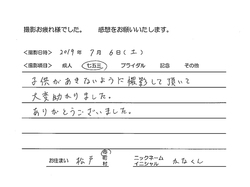 撮影お疲れ様でした。 感想をお願いいたします。
<撮影日時> 2019年 7月 6日(土)
<撮影項目> 成人 七五三 ブライダル 記念 その他
お子供があきないように撮影して頂いて
大変助かりました。
ありがとうございました。
お住まい 松戸 市 町 村 ニックネーム イニシャル かなくし